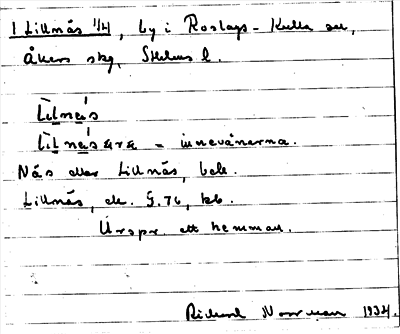 1 Lillnäs 1/4, by i Roslags-Kulla sn,
Åkers skg, Sthlms l.
Lilnäs
Lilnäsara = innevånarna.
Näs eller Lillnäs, bek.
Lillnäs, ek. G.76, kb.
Urspr ett hemman.
Rickard Norrman 1934.